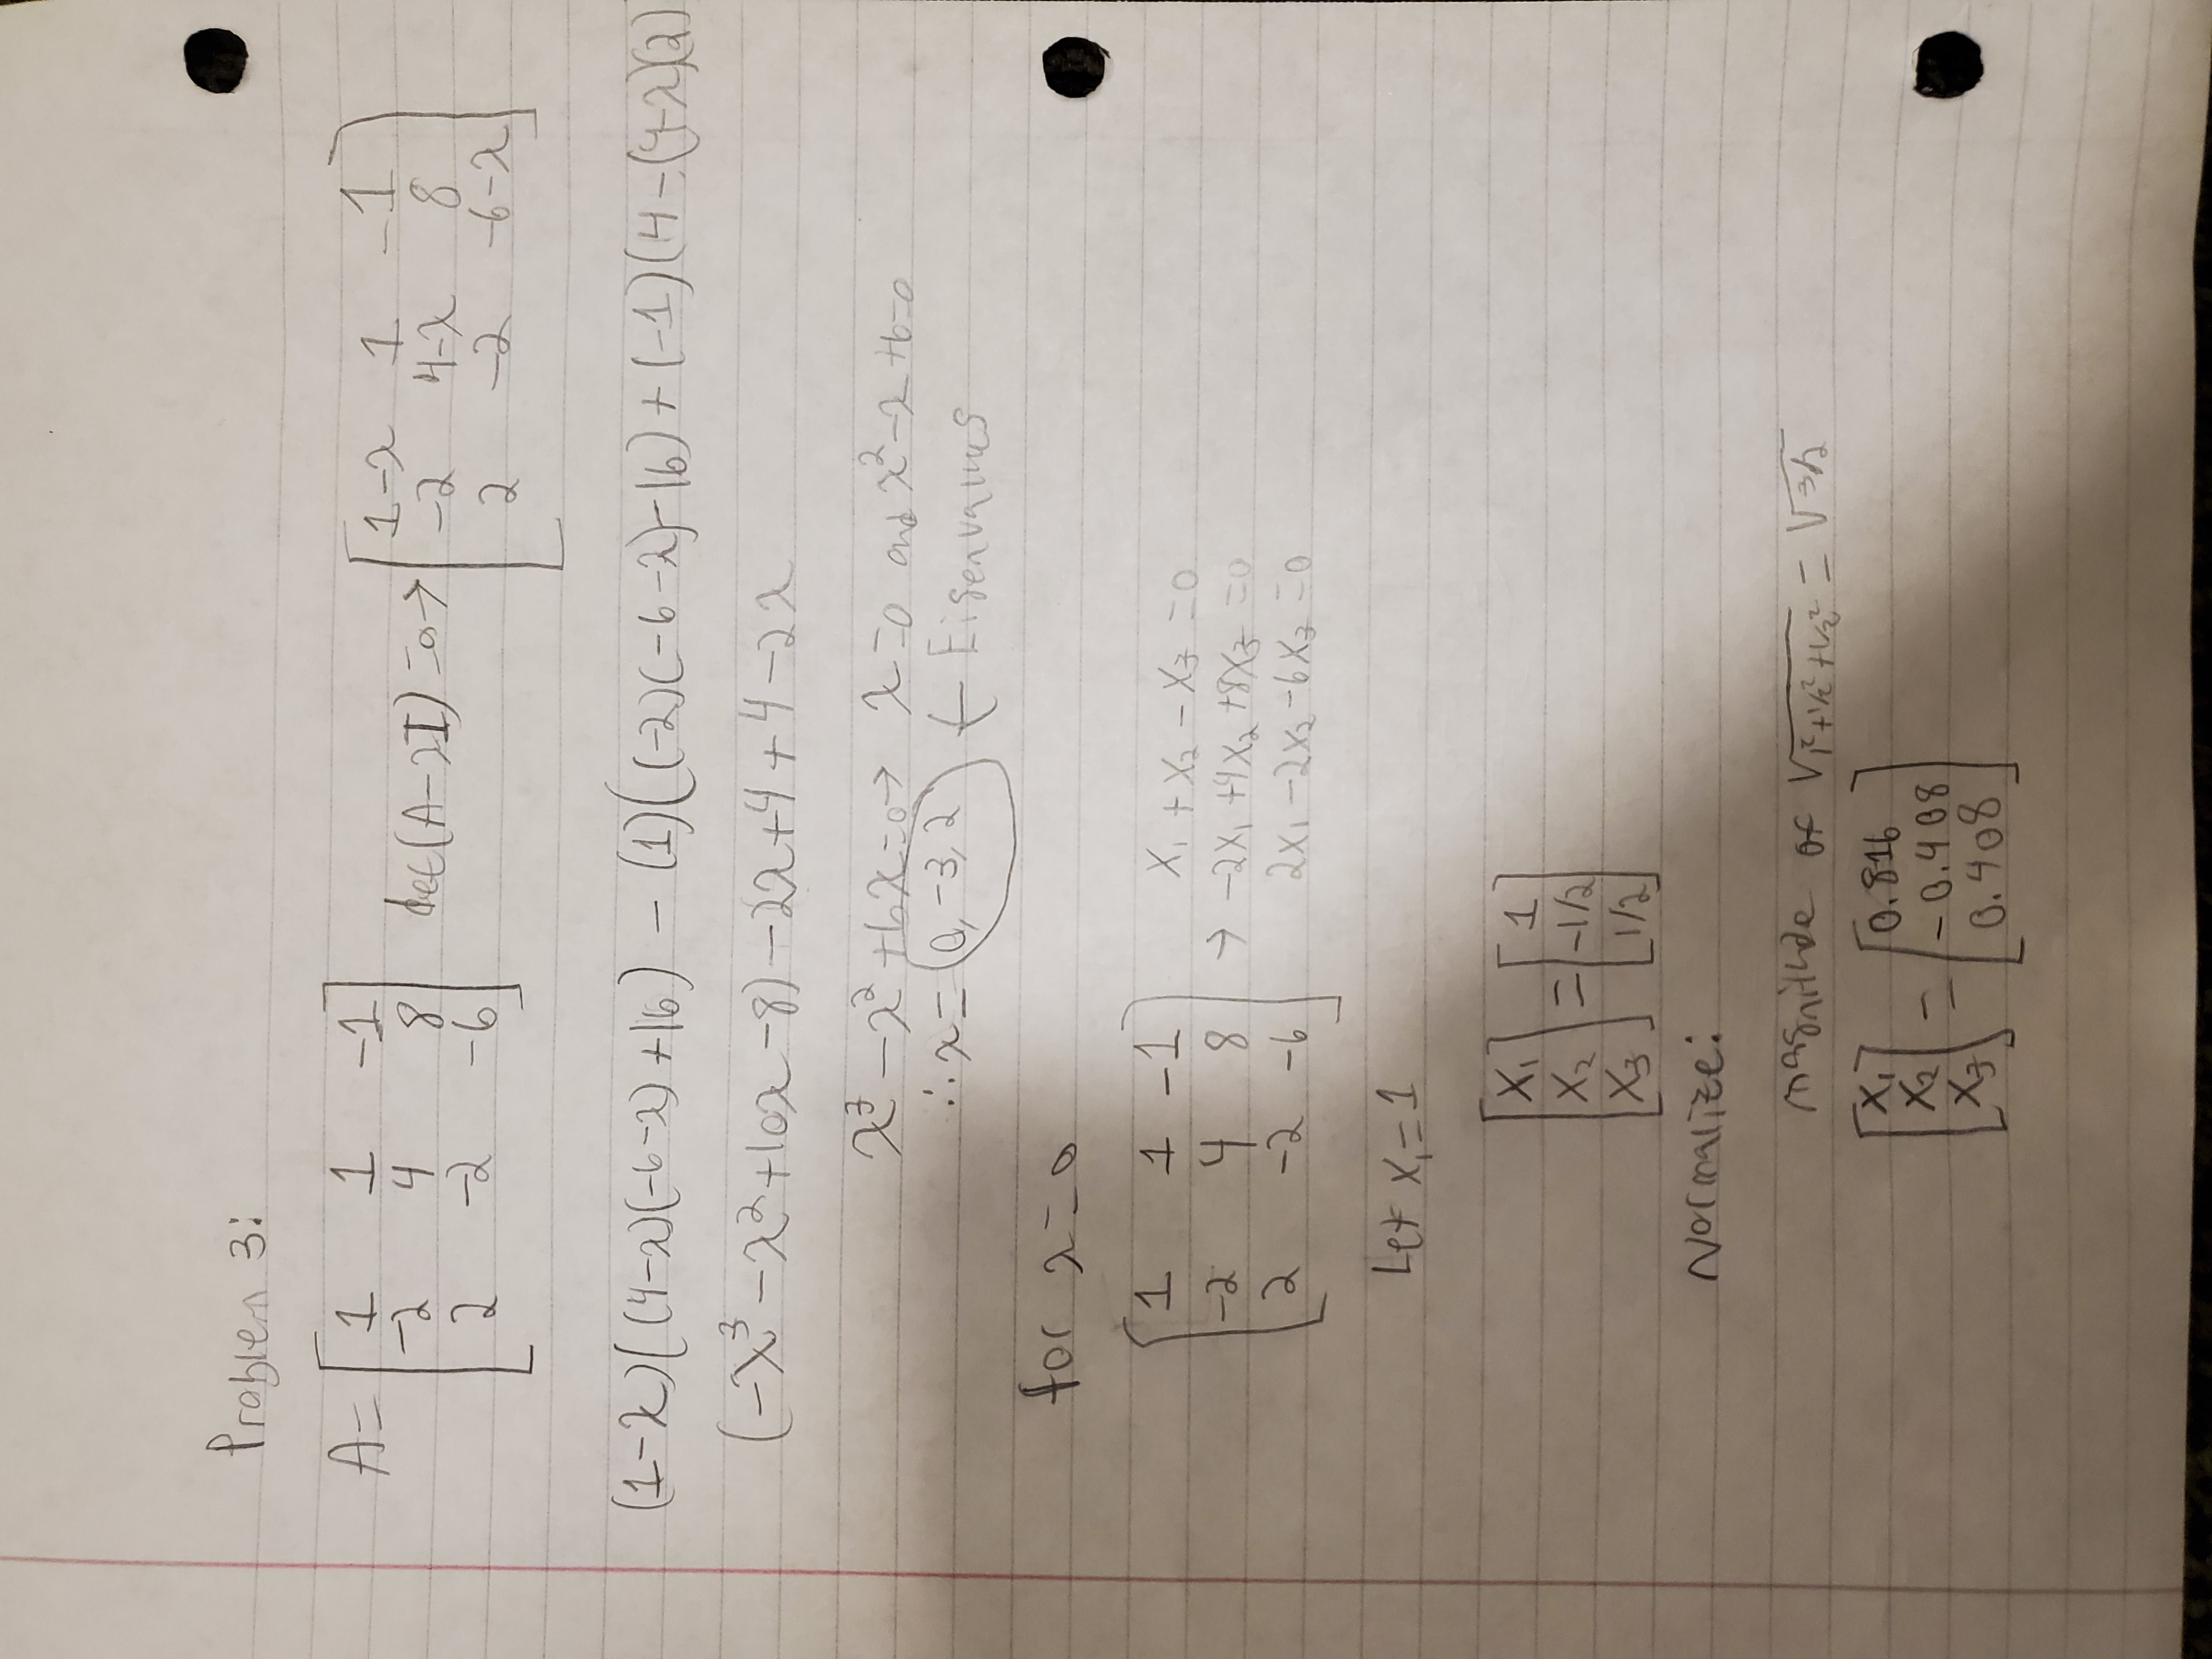 Problem 3:
A = [ 1 1 -1 ; -2 4 8 ; 2 -2 -6 ] det(A-λI) = 0 → [ 1-λ 1 -1 ; -2 4-λ 8 ; 2 -2 -6-λ ]
(1-λ)((4-λ)(-6-λ)+16) - (1)((-2)(-6-λ)-16) + (-1)(4-(4-λ)(2)
(-λ³ - λ² + 10λ - 8) - 2λ + 4 + 4 - 2λ
λ³ - λ² + 6λ = 0 → λ = 0 and λ² - λ + 6 = 0
∴ λ = 0, -3, 2 ← Eigenvalues
for λ = 0
[ 1 1 -1 ; -2 4 8 ; 2 -2 -6 ] → x₁ + x₂ - x₃ = 0
-2x₁ + 4x₂ + 8x₃ = 0
2x₁ - 2x₂ - 6x₃ = 0
Let x₁ = 1
[ x₁ ; x₂ ; x₃ ] = [ 1 ; -1/2 ; 1/2 ]
Normalize:
magnitude of √(1² + 1/2² + 1/2²) = √3/2
[ x₁ ; x₂ ; x₃ ] = [ 0.816 ; -0.408 ; 0.408 ]